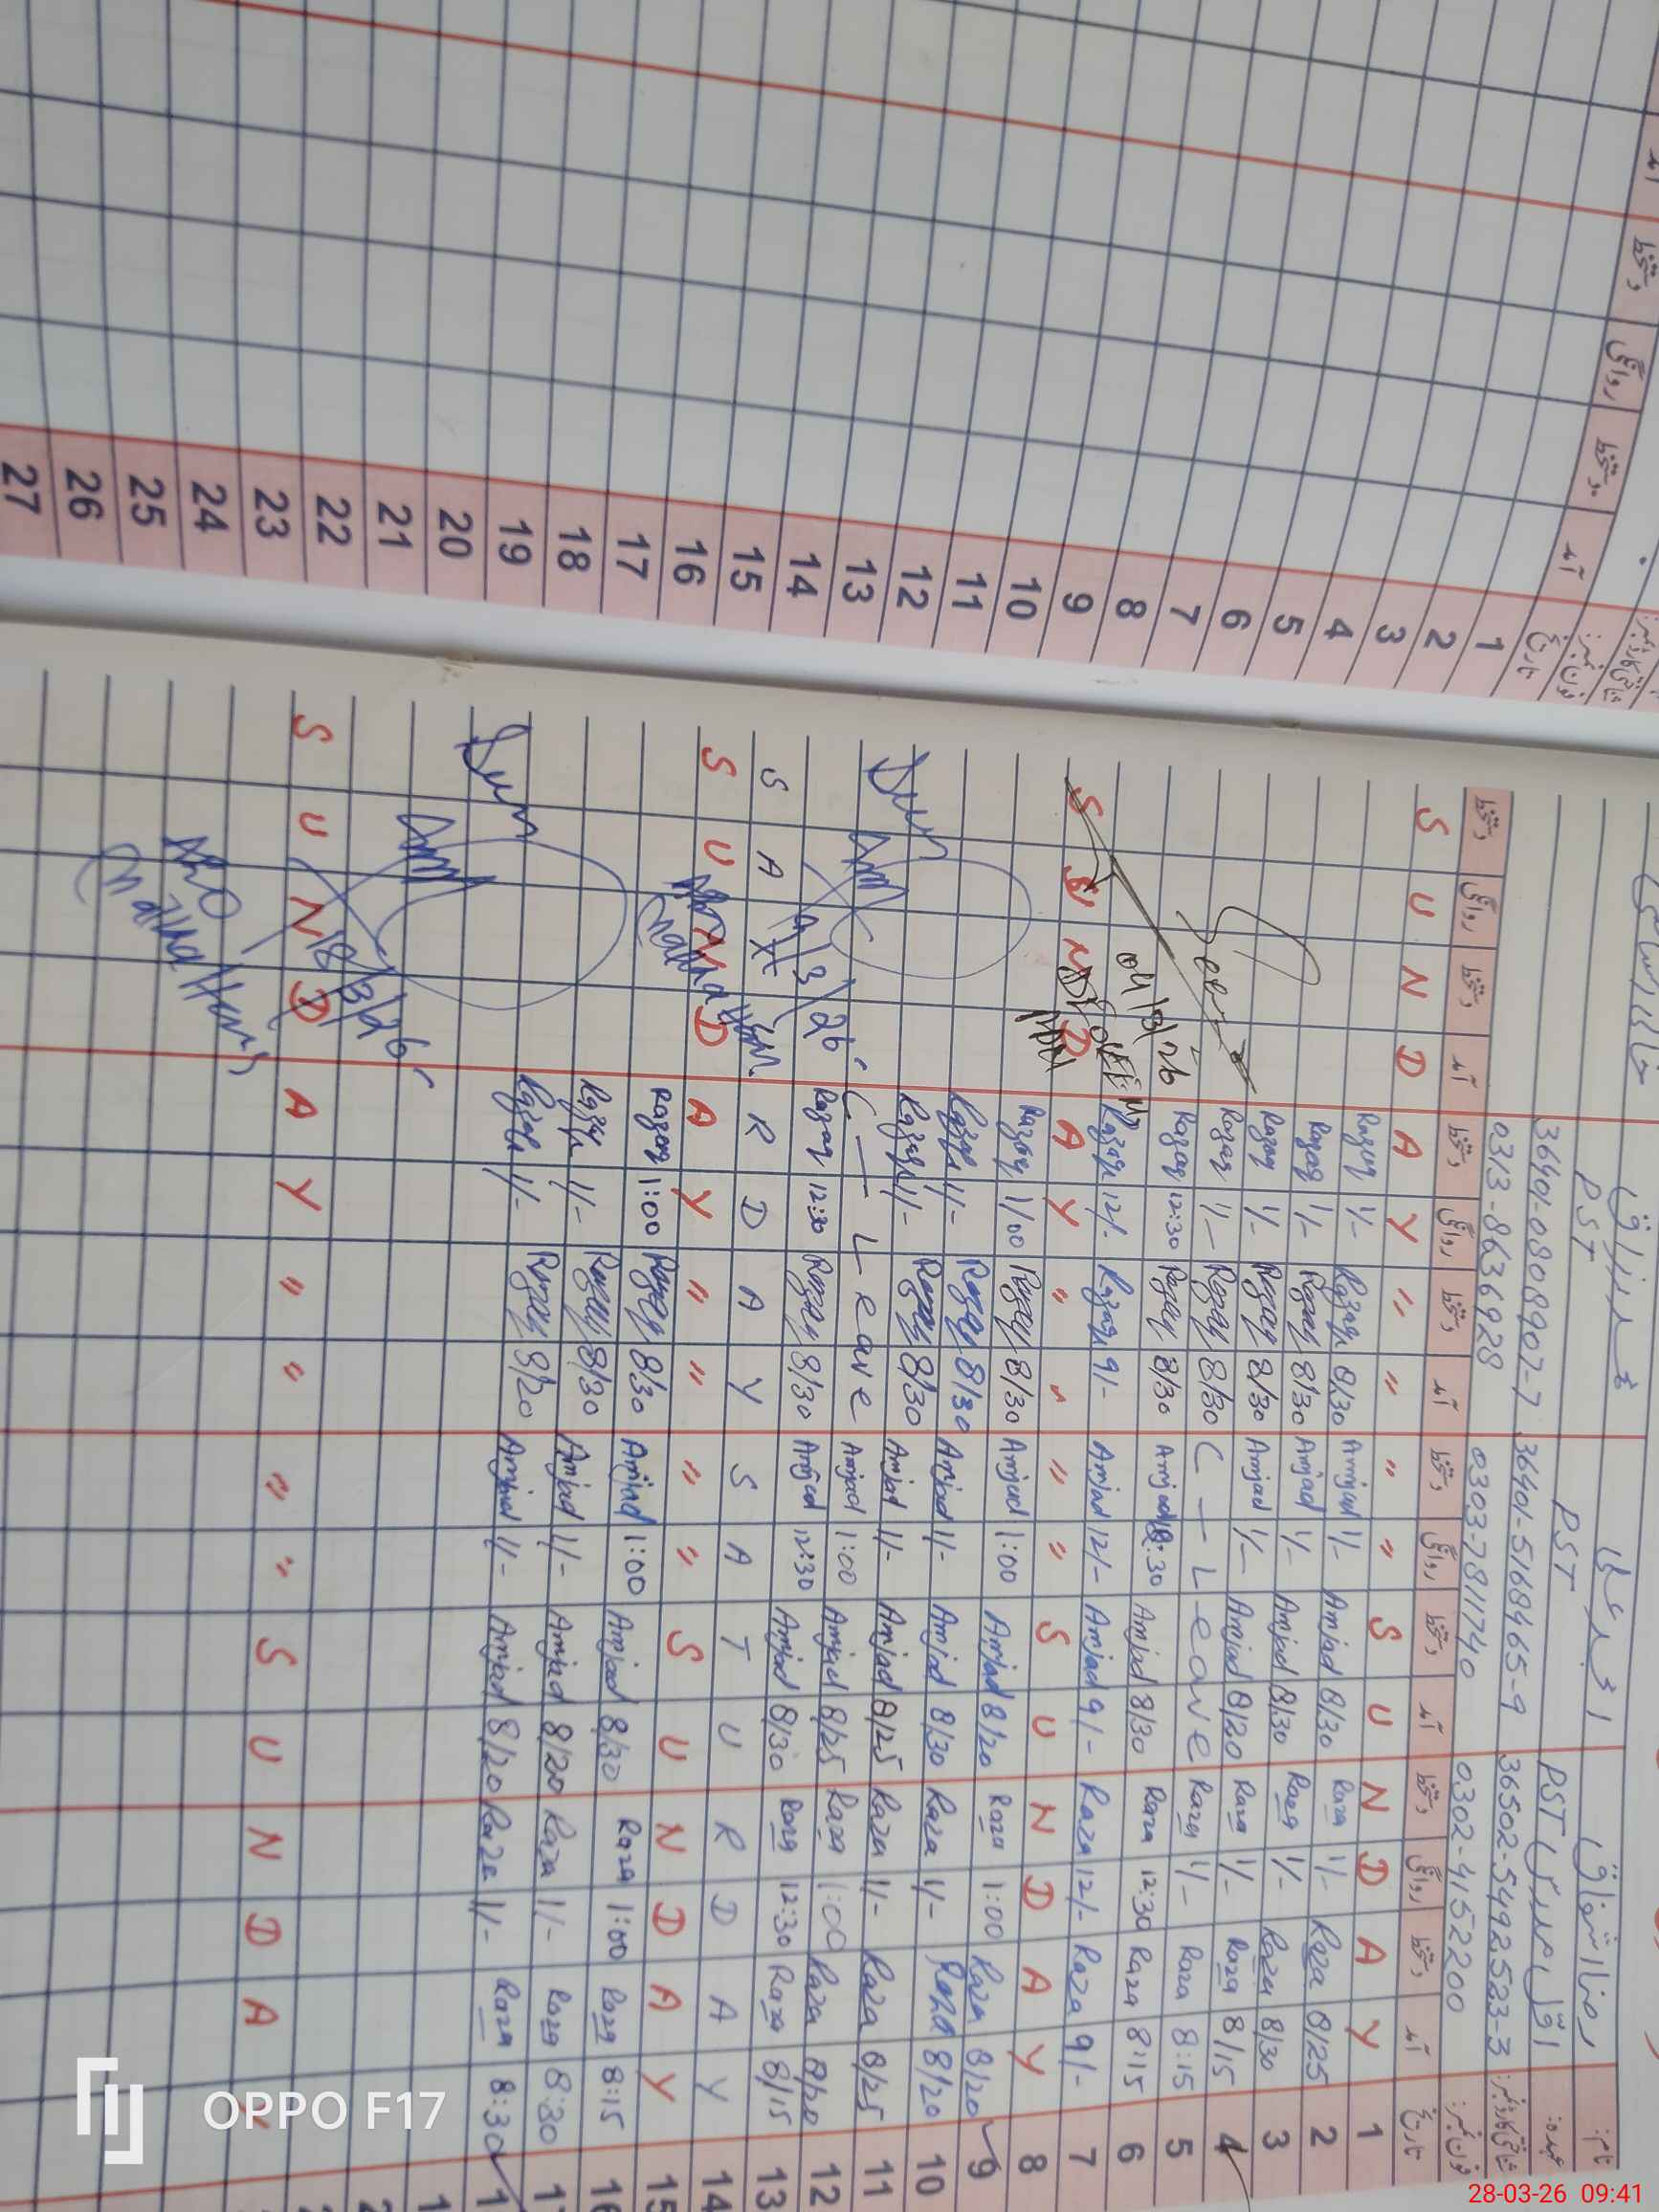 نام: رضا اشفاق امجد علی عبدالرزاق
عہدہ: PST PST PST
شناختی کارڈ نمبر: 36502-5492523-3 36401-5168465-9 36401-0808907-7
فون نمبر: 0302-4152200 0303-7811740 0313-8636928
تاریخ آمد دستخط روانگی دستخط آمد دستخط روانگی دستخط آمد دستخط روانگی دستخط آمد دستخط روانگی دستخط
1 S U N D A Y " " " " S U N D A Y
2 8/25 Raza 1/- Raza 8/30 Amjad 1/- Amjad 8/30 Razaq 1/- Razaq
3 8/30 Raza 1/- Raza 8/30 Amjad 1/- Amjad 8/30 Razaq 1/- Razaq
4 8/15 Raza 1/- Raza 8/20 Amjad 1/- Amjad 8/30 Razaq 1/- Razaq
5 8:15 Raza 1/- Raza C - Leave 8/30 Razaq 1/- Razaq
6 8:15 Raza 12:30 Raza 8/30 Amjad 12:30 Amjad 8/30 Razaq 12:30 Razaq
04/3/26
7 9/- Raza 12/- Raza 9/- Amjad 12/- Amjad 9/- Razaq 12/- Razaq
8 S U N D A Y " " " " S U N D A Y
9 8/20 Raza 1:00 Raza 8/20 Amjad 1:00 Amjad 8/30 Razaq 1/00 Razaq
10 8/20 Raza 1/- Raza 8/30 Amjad 1/- Amjad 8/30 Razaq 1/- Razaq
11 8/25 Raza 1/- Raza 8/25 Amjad 1/- Amjad 8/30 Razaq 1/- Razaq
12 8/20 Raza 1:00 Raza 8/25 Amjad 1:00 Amjad C - Leave
13 8/15 Raza 12:30 Raza 8/30 Amjad 12:30 Amjad 8/30 Razaq 12:30 Razaq
14 S A T U R D A Y S A T U R D A Y
15 S U N D A Y " " " " S U N D A Y
16 8:15 Raza 1:00 Raza 8/30 Amjad 1:00 Amjad 8/30 Razaq 1:00 Razaq
8:30 Raza 1/- Raza 8/20 Amjad 1/- Amjad 8/30 Razaq 1/- Razaq
8:30 Raza 1/- Raza 8/20 Amjad 1/- Amjad 8/20 Razaq 1/- Razaq
18/3/26
A D N U S " " " " Y A D N U S
شناختی کارڈ نمبر:
فون نمبر:
تاریخ آمد دستخط روانگی دستخط آمد
1
2
3
4
5
6
7
8
9
10
11
12
13
14
15
16
17
18
19
20
21
22
23
24
25
26
27
OPPO F17
28-03-26 09:41